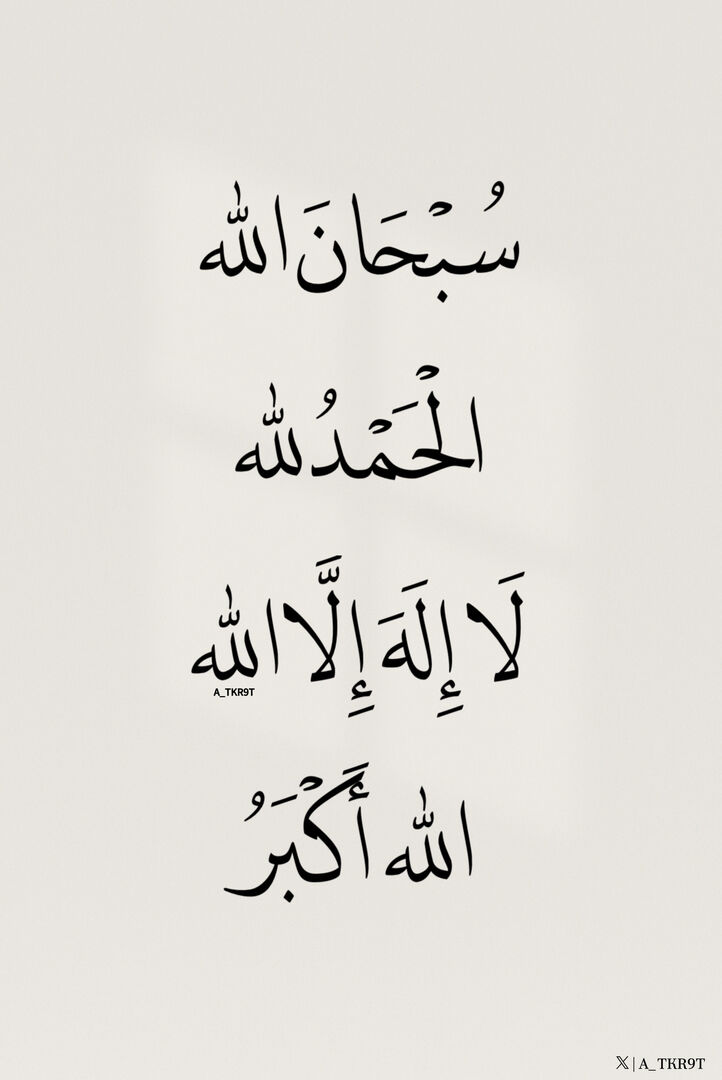 سُبْحَانَ الله
الْحَمْدُ لله
لَا إِلَهَ إِلَّا الله
A_TKR9T
الله أَكْبَرُ
𝕏 | A_TKR9T